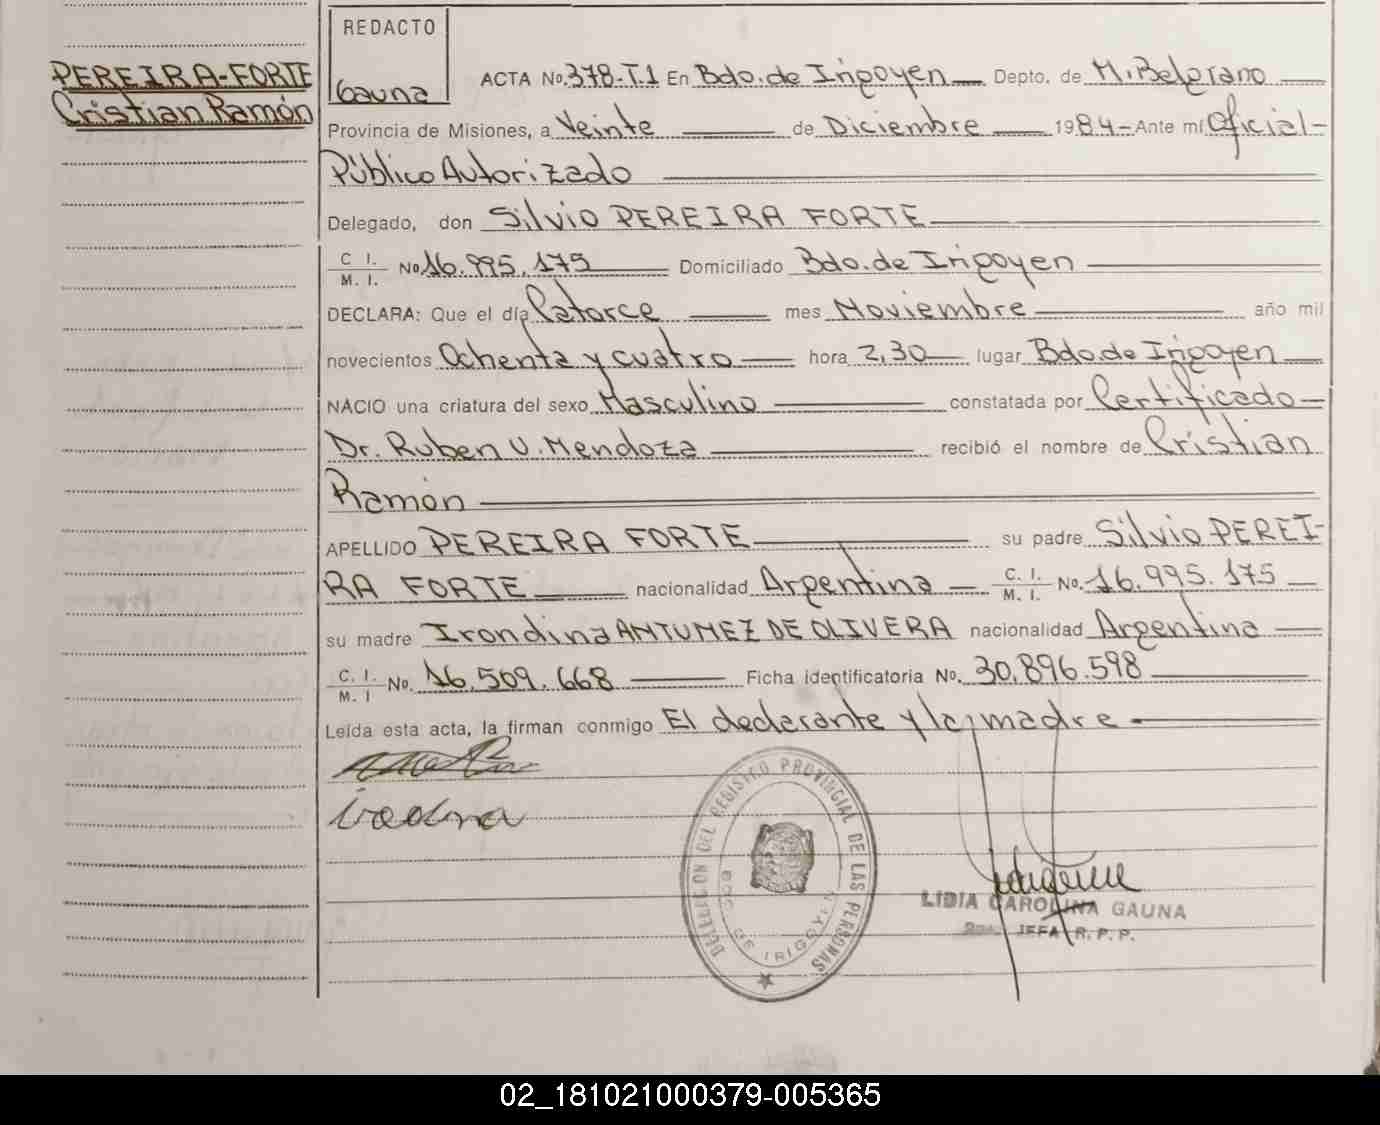 REDACTO
Gauna
PEREIRA-FORTE
Cristian Ramón
ACTA No. 378-T.1 En Bdo. de Irigoyen Depto. de M. Belgrano
Provincia de Misiones, a Veinte de Diciembre 1984- Ante mí Oficial-
Público Autorizado
Delegado, don Silvio PEREIRA FORTE
C. I. M. I. No 16.995.175 Domiciliado Bdo. de Irigoyen
DECLARA: Que el día Catorce mes Noviembre año mil
novecientos Ochenta y cuatro hora 2,30 lugar Bdo. de Irigoyen
NACIO una criatura del sexo Masculino constatada por Certificado
Dr. Ruben U. Mendoza recibió el nombre de Cristian
Ramón
APELLIDO PEREIRA FORTE su padre Silvio PEREI-
RA FORTE nacionalidad Argentina C. I. M. I. No. 16.995.175
su madre Irondina ANTUNEZ DE OLIVERA nacionalidad Argentina
C. I. M. I No. 16.509.668 Ficha identificatoria No. 30.896.598
Leída esta acta, la firman conmigo El declarante y la madre
DELEGACION DEL REGISTRO PROVINCIAL DE LAS PERSONAS
BDO. DE IRIGOYEN
LIDIA CAROLINA GAUNA
JEFA R. P. P.
02_181021000379-005365